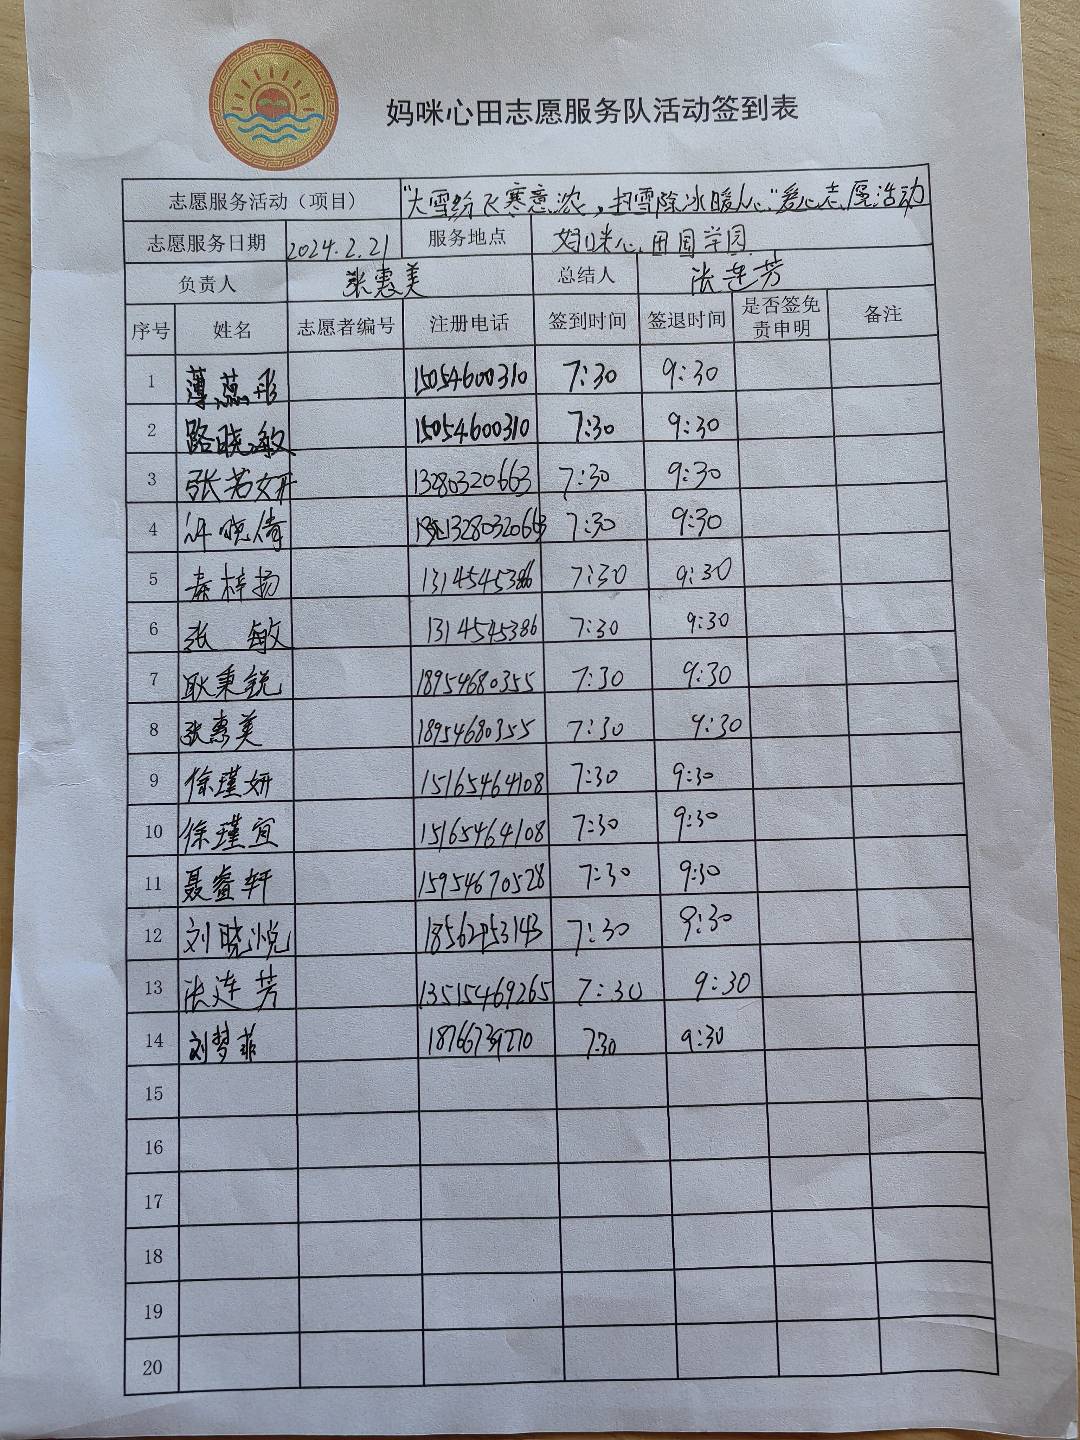 妈咪心田志愿服务队活动签到表
志愿服务活动（项目） “大雪纷飞寒意浓，扫雪除冰暖人心”爱心志愿活动
志愿服务日期 2024.2.21 服务地点 妈咪心田国学园
负责人 张惠美 总结人 张连芳
序号 姓名 志愿者编号 注册电话 签到时间 签退时间 是否签免责申明 备注
1 薄蕊彤 15054600310 7:30 9:30
2 路晓敏 15054600310 7:30 9:30
3 张若妍 13280320663 7:30 9:30
4 许晚倚 13280320663 7:30 9:30
5 秦梓扬 7:30 9:30
6 张敏 1314545386 7:30 9:30
7 耿秉锐 18954680355 7:30 9:30
8 张惠美 18954680355 7:30 9:30
9 徐瑾妍 15165464108 7:30 9:30
10 徐瑾宜 15165464108 7:30 9:30
11 聂睿轩 15954670528 7:30 9:30
12 刘晓悦 18562953143 7:30 9:30
13 张连芳 13515469265 7:30 9:30
14 刘梦菲 7:30 9:30
15
16
17
18
19
20